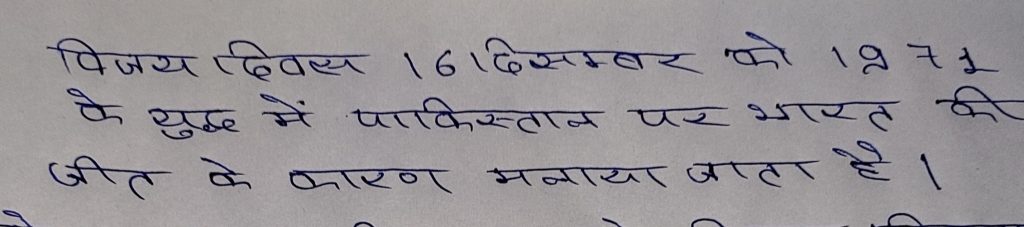 विजय दिवस 16 दिसम्बर को 1971
के युद्ध में पाकिस्तान पर भारत की
जीत के कारण मनाया जाता है।